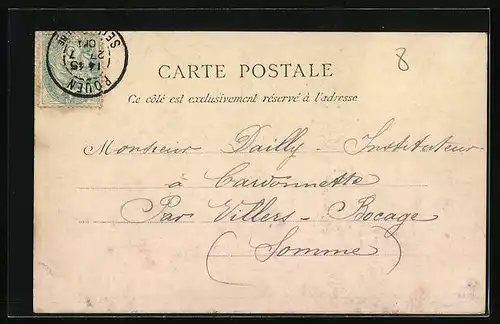 8
CARTE POSTALE
Ce côté est exclusivement réservé à l'adresse
ROUEN
14 45
Monsieur Dailly - Instituteur
à Cardonnette
Par Villers-Bocage
(Somme)